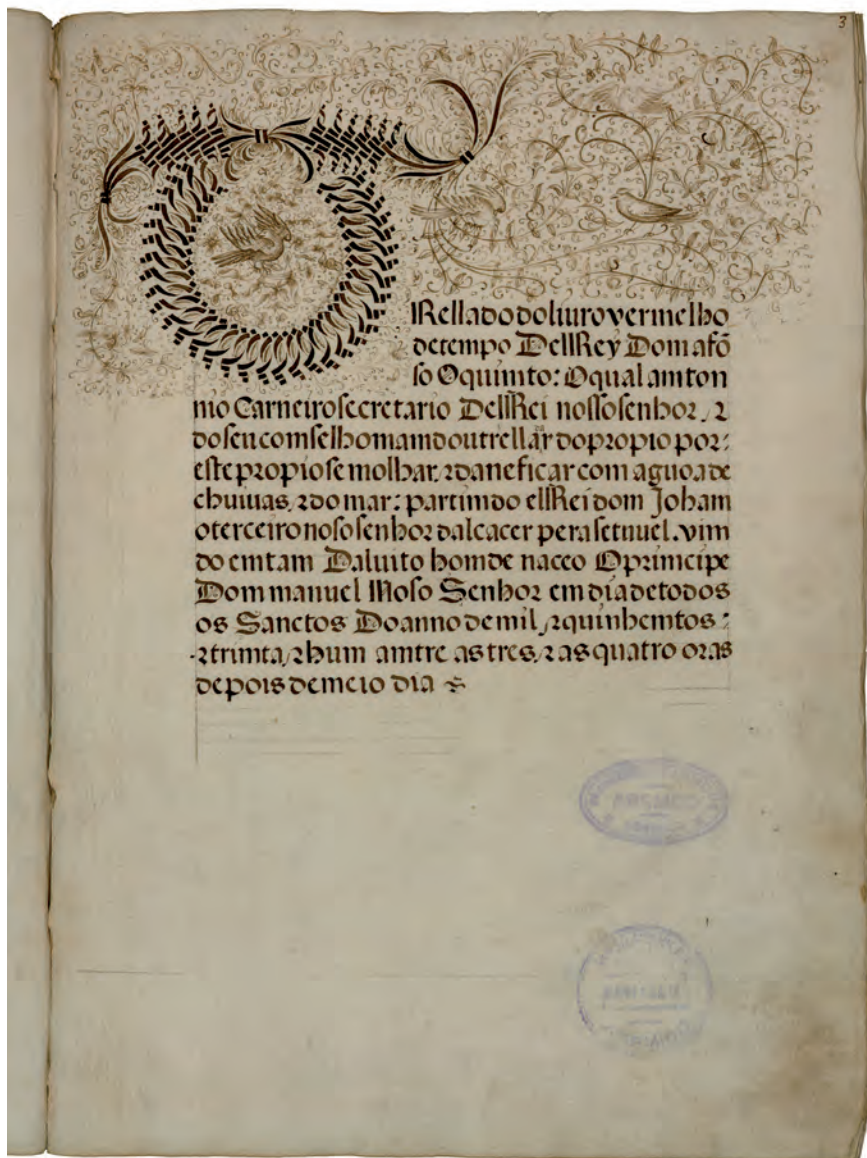 3
TRellado do liuro vermelho
de tempo Dell Rey Dom afõ
so O quimto: O qual amton
nio Carneiro secretario Dell Rei nosso senhor, ⁊
do seu comselho mamdou trelladar do propio por:
este propio se molhar, ⁊ daneficar com aguoa de
chuiuas, ⁊ do mar: partimdo ell Rei dom Joham
o terceiro noso senhor dalcacer pera setuuel. vim
do emtam Daluito homde naceo O primcipe
Dom manuel Noso Senhor em dia de todos
os Sanctos Do anno de mil, ⁊ quinhemtos:
⁊ trimta, ⁊ hum amtre as tres, ⁊ as quatro oras
depois de meio dia